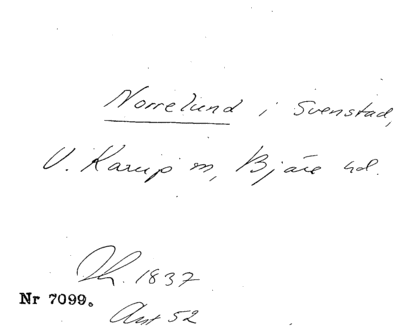 Norrelund i Svenstad,
V. Karup sn, Bjäre hd.
Th. 1837
Nr 7099.
Ant 52